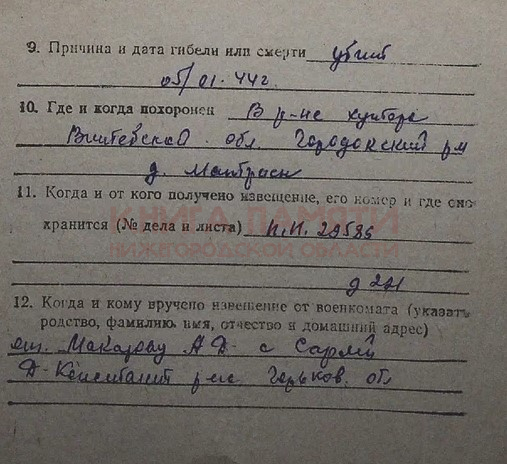 9. Причина и дата гибели или смерти убит
05/01.44г.
10. Где и когда похоронен В р-не хутора
Витебская обл. Городокский р-н
д.
11. Когда и от кого получено извещение, его номер и где оно
хранится (№ дела и листа) п.п. 29585
КНИГА ПАМЯТИ
НИЖЕГОРОДСКОЙ ОБЛАСТИ
д 221
12. Когда и кому вручено извещение от военкомата (указать
родство, фамилию, имя, отчество и домашний адрес)
Макарову А Д с
Д-Константин р-не Горьков. обл